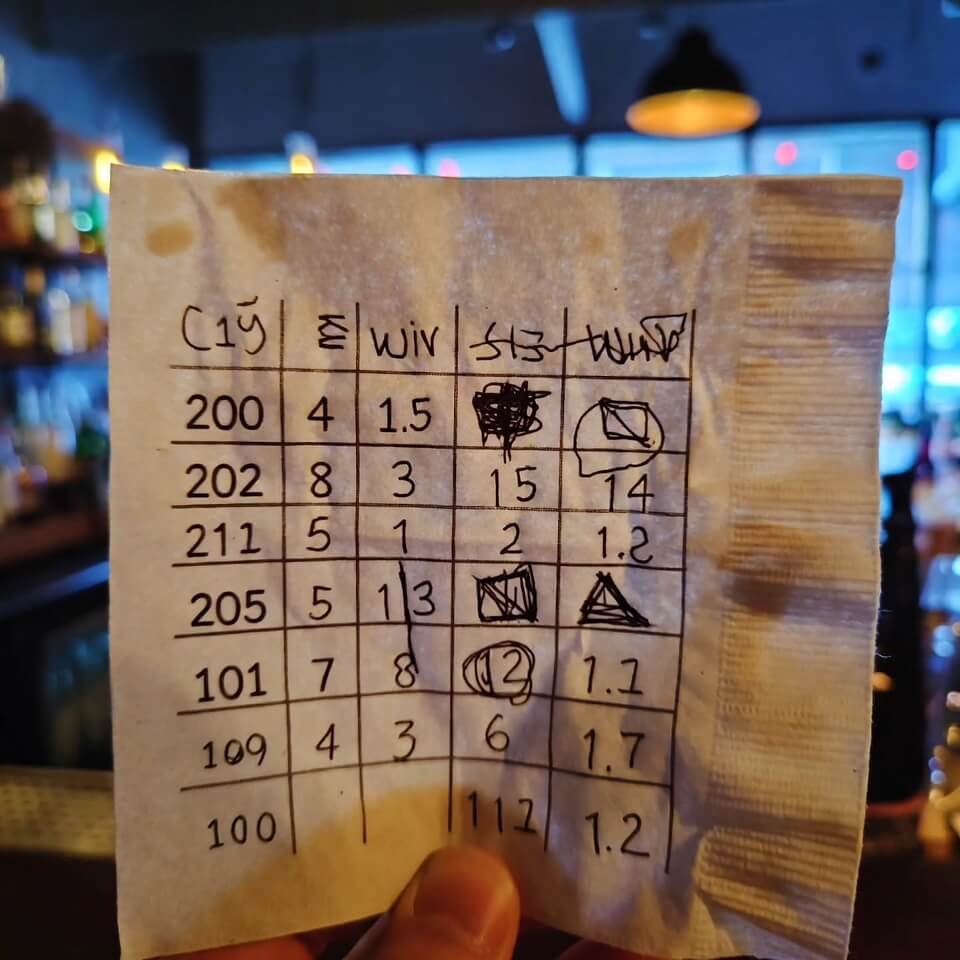 wiv
200 4 1.5
202 8 3 15 14
211 5 1 2 1.2
205 5 1 3
101 7 8 12 1.1
109 4 3 6 1.7
100 111 1.2